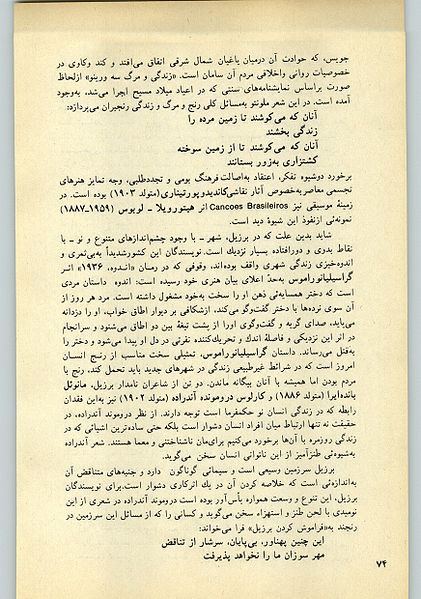 جویس، که حوادث آن درمیان یاغیان شمال شرقی اتفاق می‌افتد و کند وکاوی در
خصوصیات روانی واخلاقی مردم آن سامان است. «زندگی و مرگ سه ورینو» ازلحاظ
صورت براساس نمایشنامه‌های سنتی که در اعیاد میلاد مسیح اجرا می‌شد، به‌وجود
آمده است. در این شعر ملونتو به‌مسائل کلی رنج و مرگ و زندگی رنجبران می‌پردازد:
آنان که می‌کوشند تا زمین مرده را
زندگی بخشند
آنان که می‌کوشند تا از زمین سوخته
کشتزاری به‌زور بستانند
برخورد دوشیوه تفکر، اعتقاد به‌اصالت فرهنگ بومی و تجددطلبی، وجه تمایز هنرهای
تجسمی معاصر به‌خصوص آثار نقاشی کاندیدو پورتیناری (متولد ۱۹۰۳) بوده است. در
زمینهٔ موسیقی نیز Cancoes Brasileiros اثر هیتورویلا ـ لوبوس (۱۹۵۹ـ۱۸۸۷)
نمونه‌ئی ازنفوذ این شیوهٔ دید است.
شاید بدین علت که در برزیل، شهر ـ با وجود چشم‌اندازهای متنوع و نو ـ با
نقاط بدوی و دورافتاده بسیار نزدیك است. نویسندگان این کشورشدیداً به‌بی‌ثمری و
اندوه‌خیزی زندگی شهری واقف بوده‌اند، وقوفی که در رمان «اندوه، ۱۹۳۶» اثر
گراسیلیانوراموس به‌حدّ اعلای بیان هنری خود رسیده است: اندوه داستان مردی
است که دختر همسایه‌ئی ذهن او را سخت به‌خود مشغول داشته است. مرد هر روز از
آن سوی نرده‌ها با دختر گفت‌وگو می‌کند، ازشکافی بر دیوار اطاق خواب، او را دزدانه
می‌پاید، صدای گریه و گفت‌وگوی اورا از پشت تیغهٔ بین دو اطاق می‌شنود و سرانجام
در اثر این نزدیکی و فاصلهٔ اندك و تحریك‌کننده نفرتی در دل او پیدا می‌شود و دختر را
به‌قتل می‌رساند. داستان گراسیلیانوراموس، تمثیلی سخت مناسب از رنج انسان
امروز است که در شرائط غیرطبیعی زندگی در شهرهای جدید باید تحمل کند، رنج با
مردم بودن اما همیشه با آنان بیگانه ماندن. دو تن از شاعران نامدار برزیل، مانوئل
باندایرا (متولد ۱۸۸۶) و کارلوس دروموند آندراده (متولد ۱۹۰۲) نیز به‌این فقدان
رابطه که در زندگی انسان نو حکمفرما است توجه دارند. از نظر دروموند آندراده، در
حقیقت نه تنها ارتباط میان افراد انسان دشوار است بلکه حتی ساده‌ترین اشیائی که در
زندگی روزمره با آن‌ها برخورد می‌کنیم برای‌مان ناشناختنی و معما هستند. شعر آندراده
به‌شیوه‌ئی طنزآمیز از این ناتوانی انسان سخن می‌گوید.
برزیل سرزمین وسیعی است و سیمائی گوناگون دارد و جنبه‌های متناقض آن
به‌اندازه‌ئی است که خلاصه کردن آن در یك اثرکاری دشوار است. برای نویسندگان
برزیل، این تنوع و وسعت همواره یأس‌آور بوده است دروموند آندراده در شعری از این
نومیدی با لحن طنز و استهزاء سخن می‌گوید و کسانی را که از مسائل این سرزمین در
رنجند به‌«فراموش کردن برزیل» فرا می‌خواند:
این چنین پهناور، بی‌پایان، سرشار از تناقض
مهر سوزان ما را نخواهد پذیرفت
۷۴